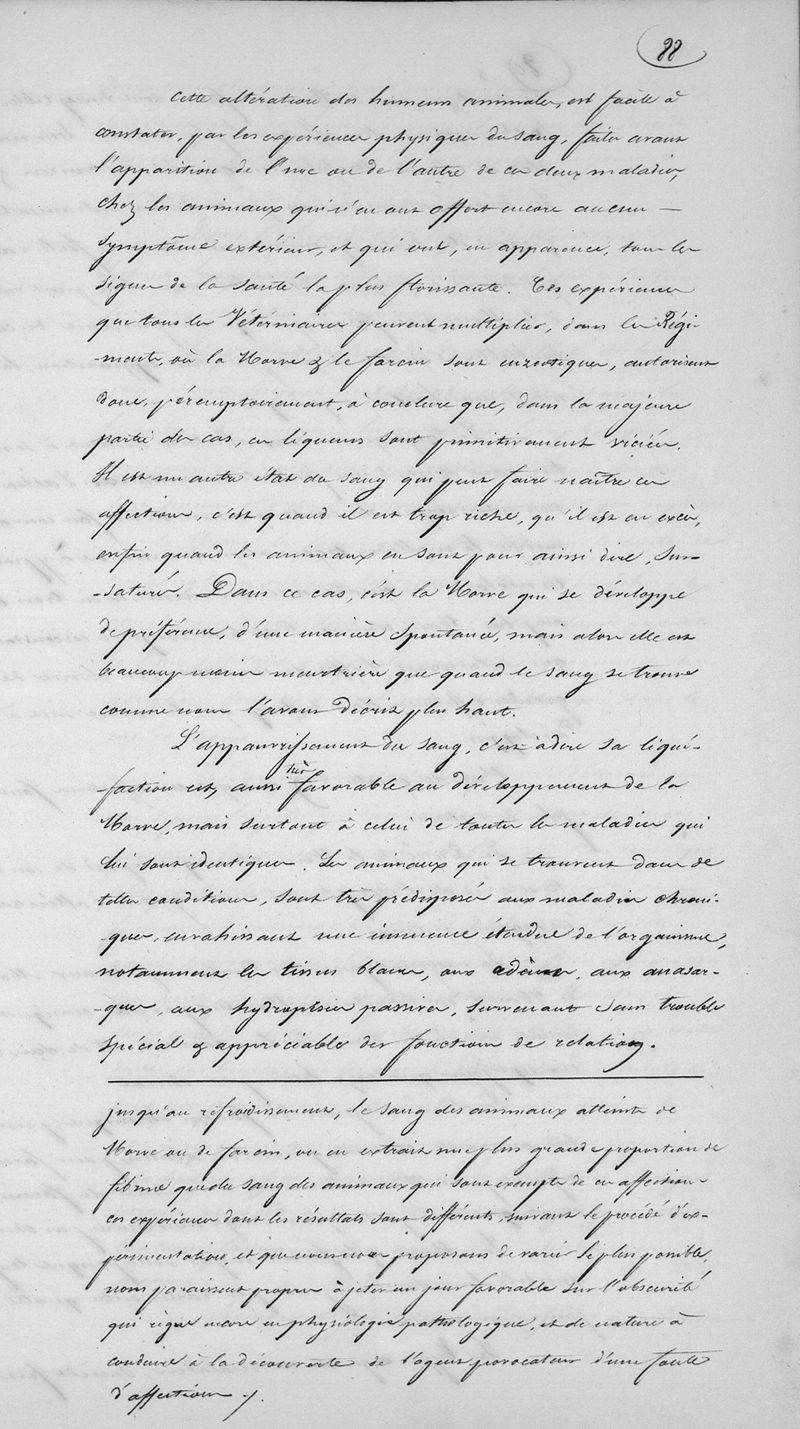 88
Cette altération des humeurs animales, est facile à
constater, par les expériences physiques du sang, faites avant
l'apparition de l'une ou de l'autre de ces deux maladies,
chez les animaux qui n'en ont offert encore aucun —
symptôme extérieur, et qui ont, en apparence, tous les
signes de la santé la plus florissante. Ces expériences
que tous les Vétérinaires peuvent multiplier, dans les Régi-
-ments, où la Morve & le farcin sont enzootiques, autorisent
donc, péremptoirement, à conclure que, dans la majeure
partie des cas, ces liqueurs sont primitivement viciées.
Il est un autre état du sang qui peut faire naître ces
affections, c'est quand il est trop riche, qu'il est en excès,
enfin quand les animaux en sont pour ainsi dire, sur-
-saturés. Dans ce cas, c'est la Morve qui se développe
de préférence, d'une manière spontanée, mais alors elle est
beaucoup moins meurtrière que quand le sang se trouve
comme nous l'avons décrit plus haut.
L'appauvrissement du sang, c'est à dire sa liqué-
-faction est, aussi très favorable au développement de la
Morve, mais surtout à celui de toutes les maladies qui
lui sont identiques. Les animaux qui se trouvent dans de
telles conditions, sont très prédisposés aux maladies chroni-
-ques, envahissant une immense étendue de l'organisme,
notamment les tissus blancs, aux œdèmes, aux anasar-
-ques, aux hydropisies passives, survenant sans trouble
spécial & appréciable des fonctions de relation.
jusqu'au refroidissement, le sang des animaux atteints de
Morve ou de farcin, on en extrait une plus grande proportion de
fibrine que du sang des animaux qui sont exempts de ces affections
ces expériences dont les résultats sont différents, suivant le procédé d'ex-
périmentation, et que nous nous proposons de varier le plus possible,
nous paraissent propres à jeter un jour favorable sur l'obscurité
qui règne encore en physiologie pathologique, et de nature à
conduire à la découverte de l'agent provocateur d'une foule
d'affections ./.